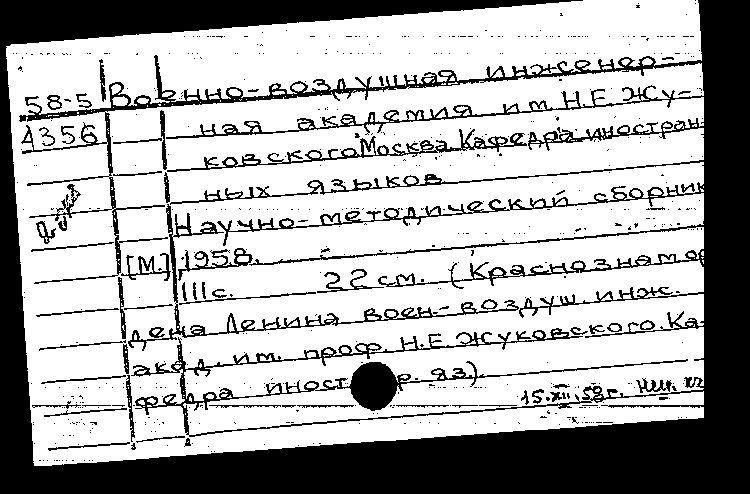 58-5 Военно-воздушная инженер-
4356 ная академия им. Н.Е. Жу-
ковского Москва Кафедра иностран
ных языков
Научно-методический сборник
[М.], 1958.
111с. 22 см. (Краснознамор
дена Ленина воен-воздуш. инж.
акад. им. проф. Н.Е. Жуковского. Ка-
федра иност р. яз.).
15.XII.58г.